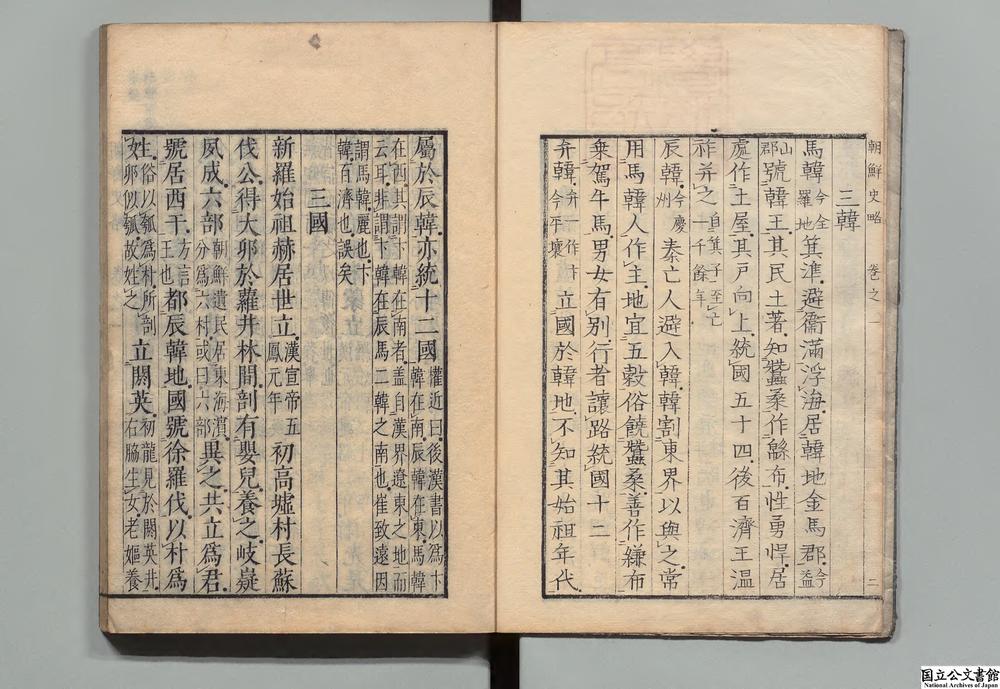 朝鮮史略 卷之一 二
三韓
馬韓今全羅地箕準避衞滿浮海居韓地金馬郡今益
山郡號韓王其民土著知蠶桑作緜布性勇悍居
處作土屋其戶向上統國五十四後百濟王溫
祚并之自箕子至亡一千餘年
辰韓今慶州秦亡人避入韓韓割東界以與之常
用馬韓人作主地宜五穀俗饒蠶桑善作縑布
乘駕牛馬男女有別行者讓路統國十二
弁韓弁一作卞今平壤立國於韓地不知其始祖年代
屬於辰韓亦統十二國權近曰後漢書以爲卞韓在南辰韓在東馬韓
在西其謂卞韓在南者盖自漢界遼東之地而云耳非謂卞韓在辰馬二韓之南也崔致遠因
謂馬韓麗也卞韓百濟也誤矣
三國
新羅始祖赫居世立漢宣帝五鳳元年初高墟村長蘇
伐公得大卵於蘿井林間剖有嬰兒養之岐嶷
夙成六部朝鮮遺民居東海濱分爲六村或曰六部異之共立爲君
號居西干方言王也都辰韓地國號徐羅伐以朴爲
姓俗以瓠爲朴所剖卵似瓠故姓之立閼英初龍見於閼英井右脇生女老嫗養